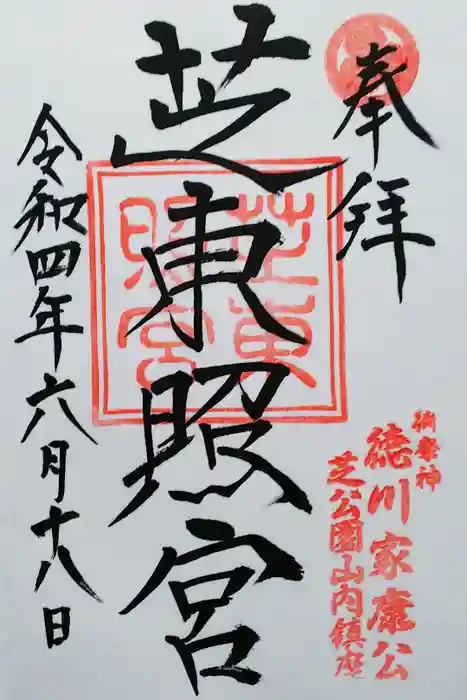 奉拝
御祭神
徳川家康公
芝公園山内鎮座
芝東照宮
芝東照宮
令和四年六月十八日